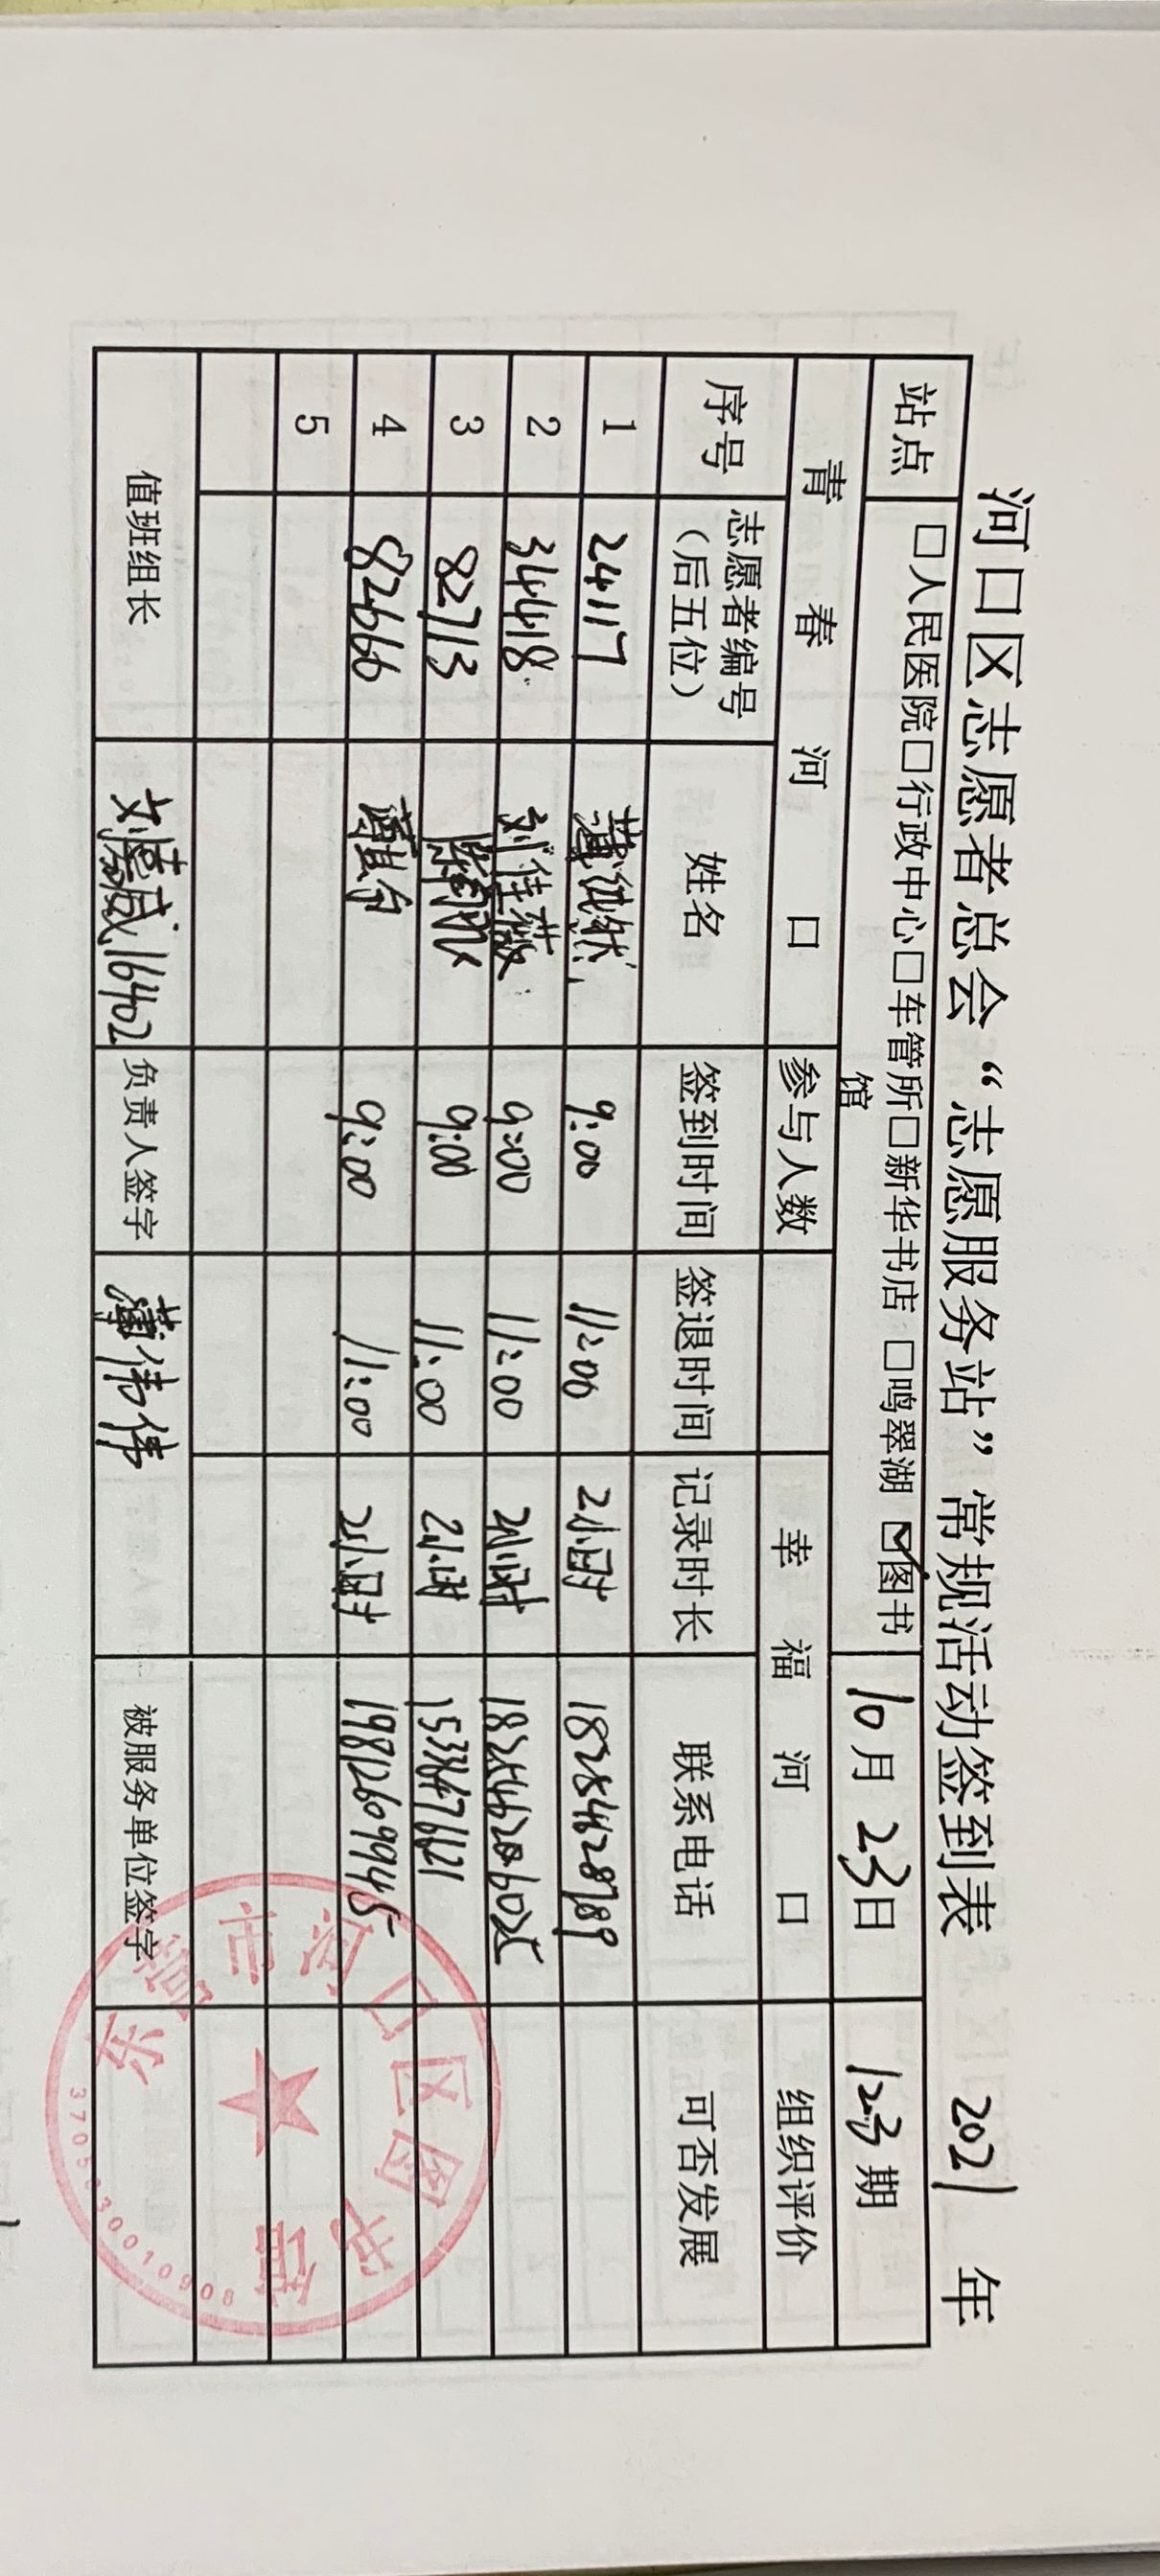 河口区志愿者总会“志愿服务站”常规活动签到表 2021 年
站点 □人民医院□行政中心□车管所□新华书店 □鸣翠湖 ☑图书馆 10月23日 123期
青春河口 参与人数 幸福河口 组织评价
序号 志愿者编号（后五位） 姓名 签到时间 签退时间 记录时长 联系电话 可否发展
1 24117 9:00 11:00 2小时 18254628789
2 34418 刘佳薇 9:00 11:00 2小时
3 82713 9:00 11:00 2小时
4 82666 9:00 11:00 2小时 19812609945
5
值班组长 16402 负责人签字 薄伟伟 被服务单位签字
东营市河口区图书馆